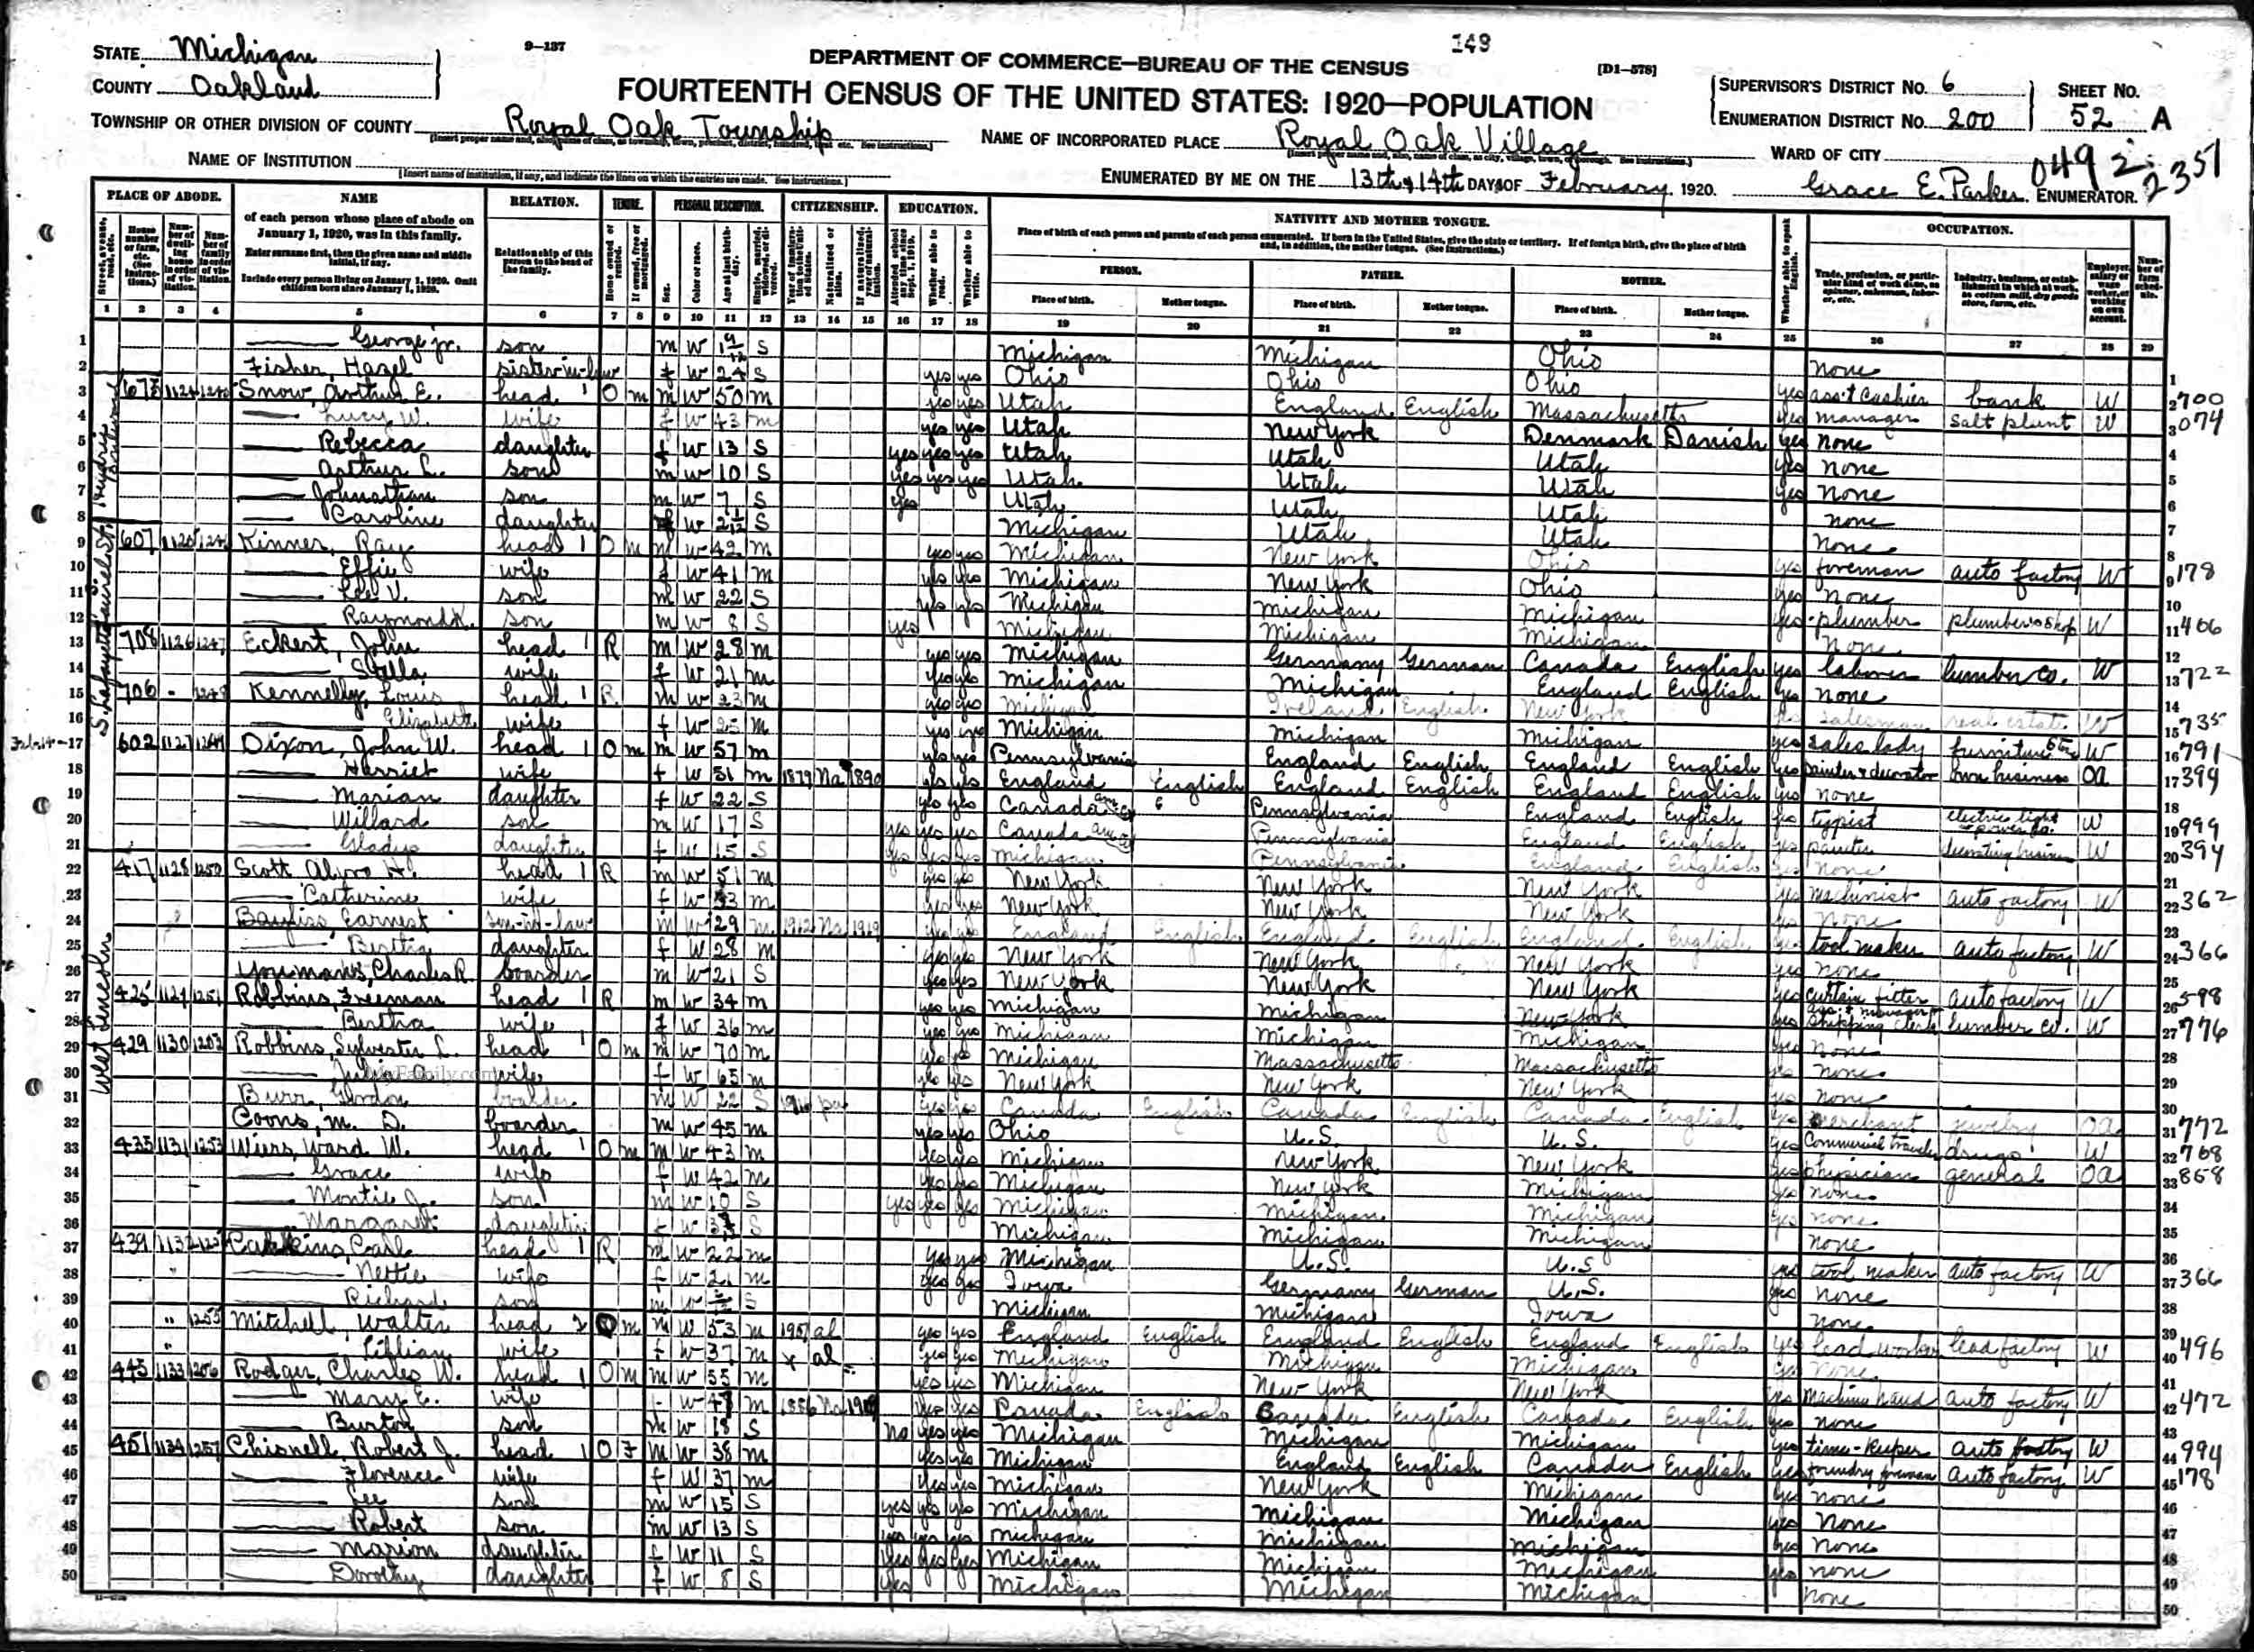 149
9—137
STATE Michigan
COUNTY Oakland
DEPARTMENT OF COMMERCE—BUREAU OF THE CENSUS
[D1—578]
FOURTEENTH CENSUS OF THE UNITED STATES: 1920—POPULATION
SUPERVISOR'S DISTRICT NO. 6
ENUMERATION DISTRICT NO. 200
SHEET NO.
52 A
TOWNSHIP OR OTHER DIVISION OF COUNTY Royal Oak Township
NAME OF INCORPORATED PLACE Royal Oak Village
WARD OF CITY
0492
2351
NAME OF INSTITUTION
(Insert name of institution, if any, and indicate the lines on which the entries are made. See instructions.)
ENUMERATED BY ME ON THE 13th & 14th DAYS OF February, 1920. Grace E. Parker ENUMERATOR.
PLACE OF ABODE. NAME RELATION. TENURE. PERSONAL DESCRIPTION. CITIZENSHIP. EDUCATION. NATIVITY AND MOTHER TONGUE. OCCUPATION.
of each person whose place of abode on January 1, 1920, was in this family.
Enter surname first, then the given name and middle initial, if any.
Include every person living on January 1, 1920. Omit children born since January 1, 1920.
Relationship of this person to the head of the family.
Place of birth of each person and parents of each person enumerated. If born in the United States, give the state or territory. If of foreign birth, give the place of birth and, in addition, the mother tongue. (See instructions.)
PERSON. FATHER. MOTHER.
Place of birth. Mother tongue. Place of birth. Mother tongue. Place of birth. Mother tongue.
1 2 3 4 5 6 7 8 9 10 11 12 13 14 15 16 17 18 19 20 21 22 23 24 25 26 27 28 29
1 George jr. son m W S Michigan Michigan Ohio none
2 Fisher, Hazel sister-in-law f W 24 S yes yes Ohio Ohio Ohio yes ass't cashier bank W 700
3 Snow, Arthur E. head 1 O m m W 50 m yes yes Utah England English Massachusetts yes manager salt plant W 074
4 Lucy W. wife f W 43 m yes yes Utah New York Denmark Danish yes none
5 Rebecca daughter f W 13 S yes yes yes Utah Utah Utah yes none
6 Arthur L. son m W 10 S yes yes yes Utah Utah Utah yes none
7 Johnathan son m W 7 S yes Utah Utah Utah none
8 Caroline daughter W S Michigan Utah Utah none
9 607 1125 Kinner, Ray head 1 O m m W 42 m yes yes Michigan New York Ohio yes foreman auto factory W 178
10 Effie wife f W 41 m yes yes Michigan New York Ohio yes none
11 Lee V. son m W 22 S yes yes Michigan Michigan Michigan yes plumber plumber's shop W 406
12 Raymond son m W 8 S yes Michigan Michigan Michigan none
13 708 1126 1247 Eckert, John head 1 R m W 28 m yes yes Michigan Germany German Canada English yes laborer lumber co. W 722
14 Stella wife f W 21 m yes yes Michigan Michigan England English yes none
15 706 1248 Kennelly, Louis head 1 R m W 23 m yes yes Michigan Ireland English New York yes salesman real estate W 735
16 Elizabeth wife f W 25 m yes yes Michigan Michigan Michigan yes saleslady furniture store W 791
17 602 1127 1249 Dixon, John W. head 1 O m m W 57 m yes yes Pennsylvania England English England English yes painter & decorator own business OA 394
18 Harriet wife f W 51 m 1879 Na 1890 yes yes England English England English England English yes none
19 Marian daughter f W 22 S yes yes Canada Pennsylvania England English yes typist electric light & power co. W 999
20 Willard son m W 17 S yes yes yes Canada Pennsylvania England English yes painter decorating business W 394
21 Gladys daughter f W 15 S yes yes yes Michigan Pennsylvania England English yes none
22 417 1128 1250 Scott Alvro H. head 1 R m W 51 m yes yes New York New York New York yes machinist auto factory W 362
23 Catherine wife f W 53 m yes yes New York New York New York yes none
24 Earnest son-in-law m W 29 m 1912 Na 1919 yes yes England English England English England English yes tool maker auto factory W 366
25 Bertha daughter f W 28 m yes yes New York New York New York yes none
26 Youmans, Charles R. boarder m W 21 S yes yes New York New York New York yes curtain fitter auto factory W 598
27 425 1129 1251 Robbins, Freeman head 1 R m W 34 m yes yes Michigan Michigan New York yes shipping clerk lumber co. W 776
28 Bertha wife f W 36 m yes yes Michigan Michigan Michigan yes none
29 429 1130 1252 Robbins, Sylvester L. head 1 O m m W 70 m yes yes Michigan Massachusetts Massachusetts yes none
30 Julia wife f W 65 m yes yes New York New York New York yes none
31 Burr, Gordon boarder m W 22 S pa yes yes Canada English Canada English Canada English yes merchant jewelry OA 772
32 Coons, M. D. boarder m W 45 m yes yes Ohio U.S. U.S. yes commercial traveler drugs W 768
33 435 1131 1253 Wiers, Ward W. head 1 O m m W 43 m yes yes Michigan New York New York yes physician general OA 868
34 Grace wife f W 42 m yes yes Michigan New York Michigan yes none
35 Montie J. son m W 10 S yes yes yes Michigan Michigan Michigan yes none
36 Margaret daughter f W S Michigan Michigan Michigan none
37 439 1132 Calkins, Carl head 1 R m W 22 m yes yes Michigan U.S. U.S. yes tool maker auto factory W 366
38 Nettie wife f W 21 m yes yes Iowa Germany German U.S. yes none
39 Richard son m W S Michigan Michigan Iowa none
40 1255 Mitchell, Walter head 2 O m m W 53 m 1907 al yes yes England English England English England English yes lead worker lead factory W 496
41 Lillian wife f W 37 m x al yes yes Michigan Michigan Michigan yes none
42 445 1133 1256 Rodger, Charles W. head 1 O m m W 55 m yes yes Michigan New York New York yes machine hand auto factory W 472
43 Mary E. wife f W m 1886 Na yes yes Canada English Canada English Canada English yes none
44 Burton son m W 18 S no yes yes Michigan Michigan Michigan yes time-keeper auto factory W 994
45 451 1134 1257 Chisnell, Robert J. head 1 O F m W 38 m yes yes Michigan England English Canada English yes foundry foreman auto factory W 178
46 Florence wife f W 37 m yes yes Michigan New York Michigan yes none
47 Lee son m W 15 S yes yes yes Michigan Michigan Michigan yes none
48 Robert son m W 13 S yes yes yes Michigan Michigan Michigan yes none
49 Marion daughter f W 11 S yes yes yes Michigan Michigan Michigan yes none
50 Dorothy daughter f W 8 S yes Michigan Michigan Michigan none
S. Lafayette
West Lincoln